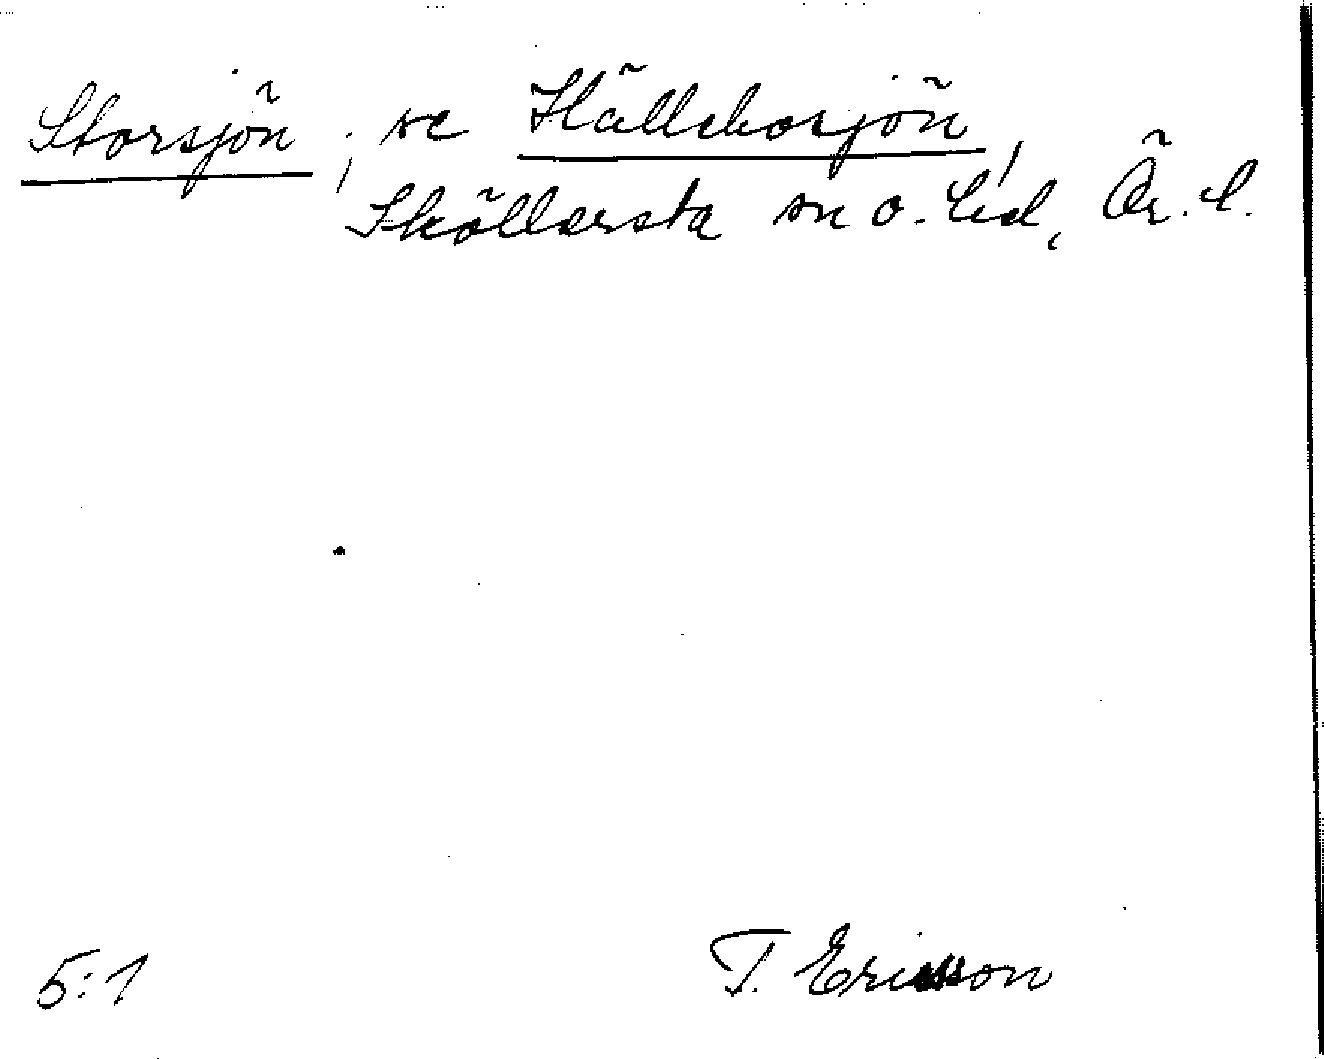 Storsjön; se Hällebosjön,
Sköllersta sn o. hd, Ör. l.
5:1 T. Ericsson